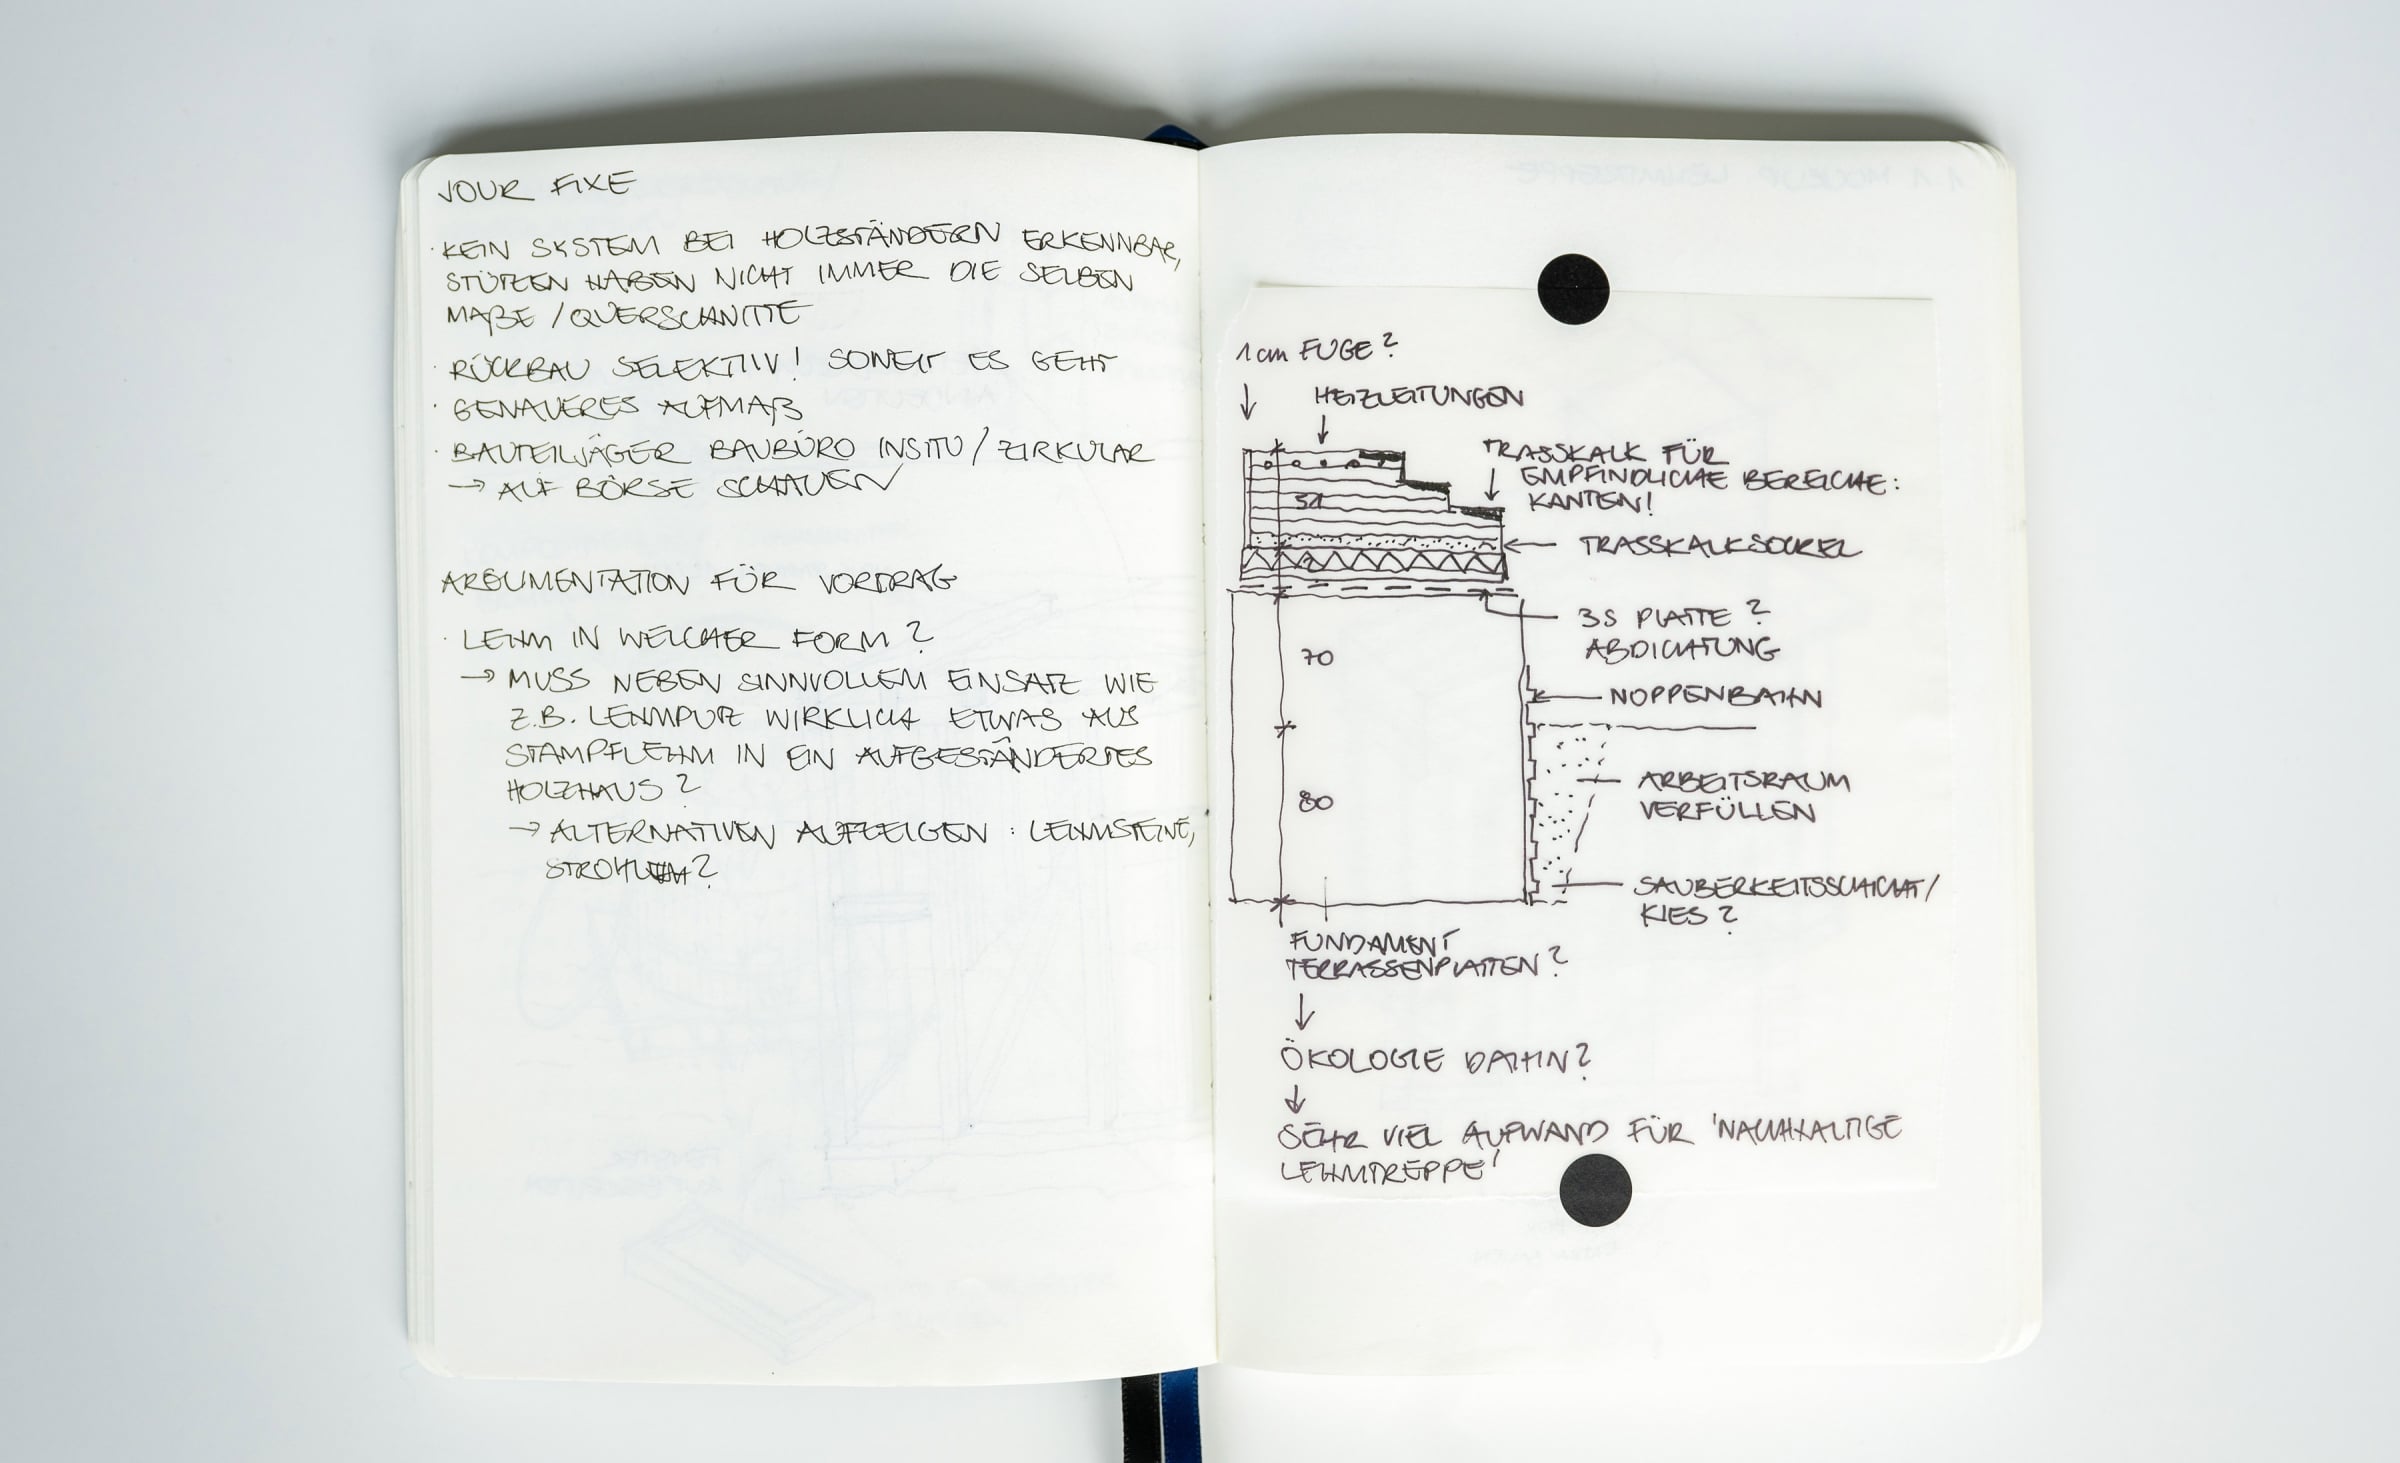 JOUR FIXE
· KEIN SYSTEM BEI HOLZSTÄNDERN ERKENNBAR,
STÜTZEN HABEN NICHT IMMER DIE SELBEN
MAßE / QUERSCHNITTE
· RÜCKBAU SELEKTIV! SOWEIT ES GEHT
· GENAUERES AUFMAß
· BAUTEILJÄGER BAUBÜRO INSITU / ZIRKULAR
→ AUF BÖRSE SCHAUEN
ARGUMENTATION FÜR VORDRAG
· LEHM IN WELCHER FORM?
→ MUSS NEBEN SINNVOLLEM EINSATZ WIE
Z.B. LEHMPUTZ WIRKLICH ETWAS AUS
STAMPFLEHM IN EIN AUFGESTÄNDERTES
HOLZHAUS?
→ ALTERNATIVEN AUFZEIGEN: LEHMSTEINE,
STROHLEHM?
1 cm FUGE?
↓
HEIZLEITUNGEN
↓
TRASSKALK FÜR
↓ EMPFINDLICHE BEREICHE:
KANTEN!
51
← TRASSKALKSOCKEL
3S PLATTE?
ABDICHTUNG
70
← NOPPENBAHN
80
ARBEITSRAUM
VERFÜLLEN
SAUBERKEITSSCHICHT/
KIES?
FUNDAMENT
TERRASSENPLATTEN?
↓
ÖKOLOGIE DAHIN?
↓
SEHR VIEL AUFWAND FÜR 'NACHHALTIGE
LEHMTREPPE'